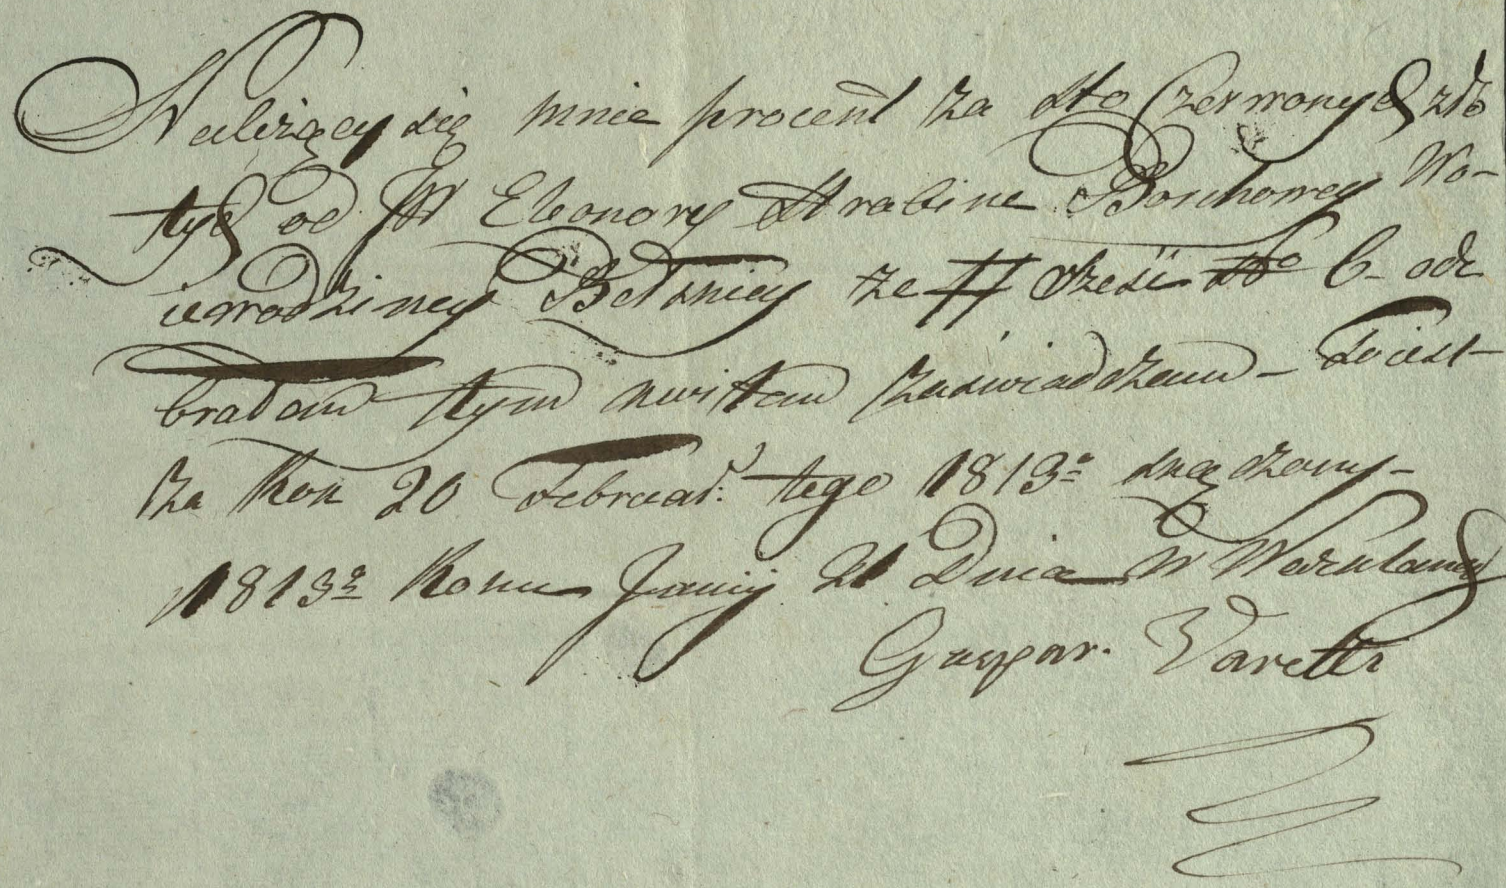 Należący się mnie procent za sto Czerwonych zło
tych od JW Eleonory Hrabine Borchowey Wo-
iewodziney Bełskiey ze # sześć No 6- ode
brałam tym kwitem zaświadczam - to iest -
za Rok 20 Februar: tego 1813o
1813o Roku Junij 21 Dnia w Warklanach
Gaspar. Varetti